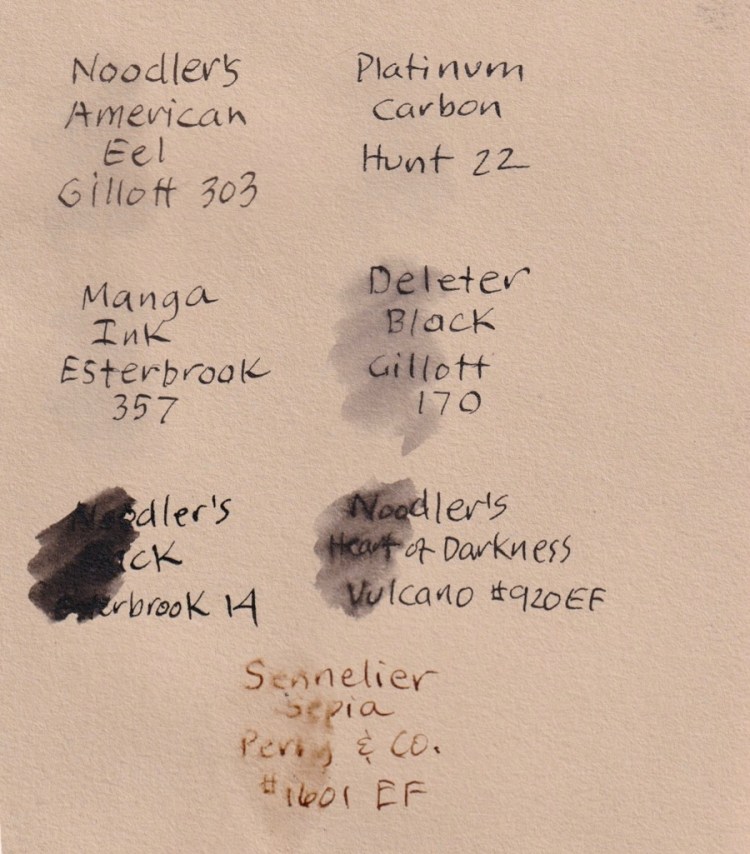 Noodler's
American
Eel
Gillott 303
Platinum
Carbon
Hunt 22
Manga
Ink
Esterbrook
357
Deleter
Black
Gillott
170
Noodler's
Esterbrook 14
Noodler's
Heart of Darkness
Vulcano #920EF
Sennelier
Sepia
Perry & Co.
#1601 EF